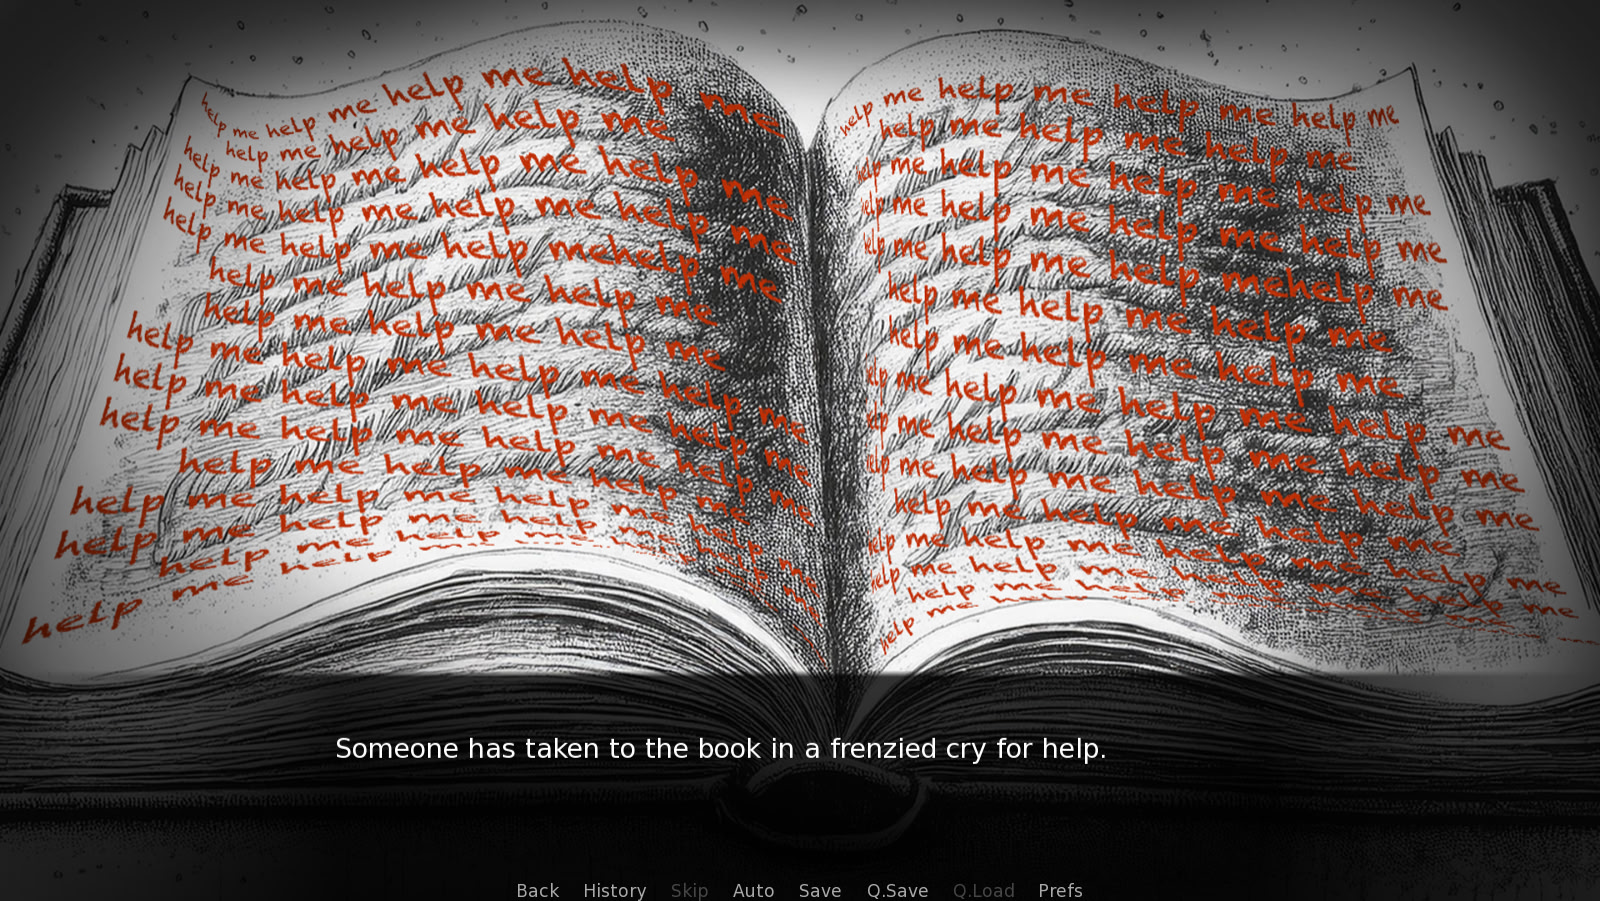 help me help me help me help me
help me help me help me
help me help me help me help me
help me help me help me help me
help me help me help mehelp me
help me help me help me
help me help me help me
help me help me help me help me
help me help me help me help me
help me help me help me help me
help me help me help me
help me help me help me help me
help me help me help me help me
help me
help me help
help me help me help me help me
help me help me help me
help me help me help me help me
help me help me help me help me
help me help me help mehelp me
help me help me help me
help me help me help me
help me help me help me help me
help me help me help me help me
help me help me help me help me
help me help me help me
help me help me help me help me
help me help me help me help me
help me
help me
Someone has taken to the book in a frenzied cry for help.
Back History Skip Auto Save Q.Save Q.Load Prefs